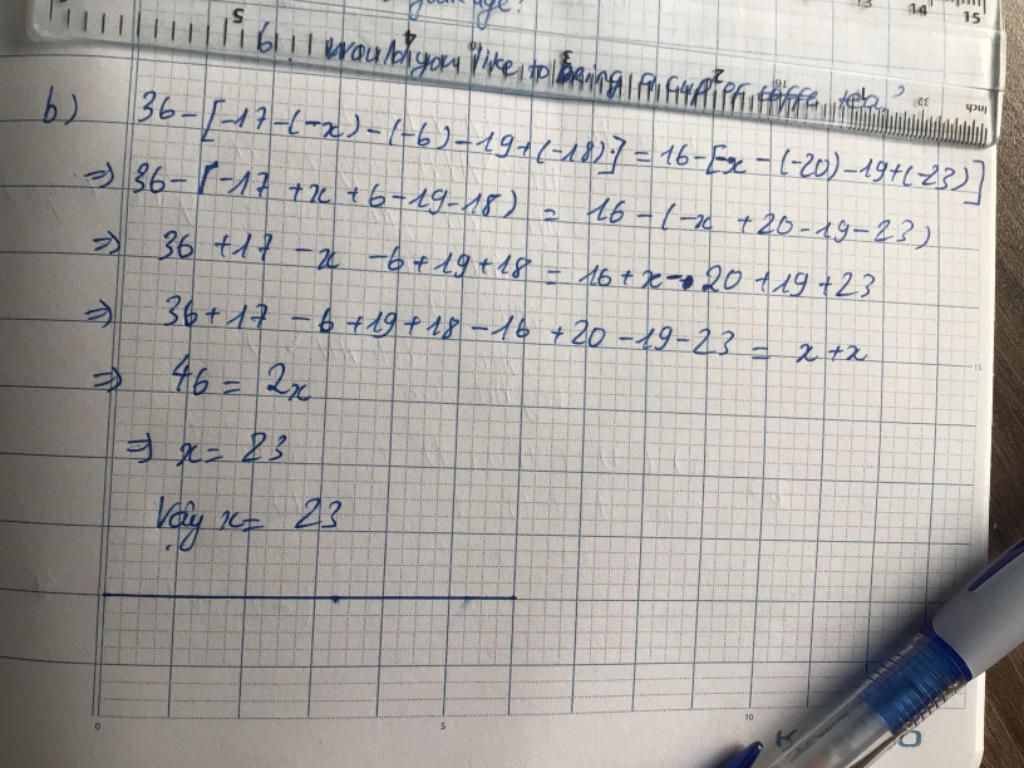 your age?
13 14 15
5
6 would you like to being a cup of coffe tea?
5 4 3 2 1 32 16 Inch
b) 36-[-17-(-x)-(-6)-19+(-18)] = 16-[-x-(-20)-19+(-23)]
⇒ 36-[-17+x+6-19-18) = 16-(-x+20-19-23)
⇒ 36+17-x-6+19+18 = 16+x-20+19+23
⇒ 36+17-6+19+18-16+20-19-23 = x+x
15
⇒ 46 = 2x
⇒ x = 23
Vậy x = 23
0 5 10
K O